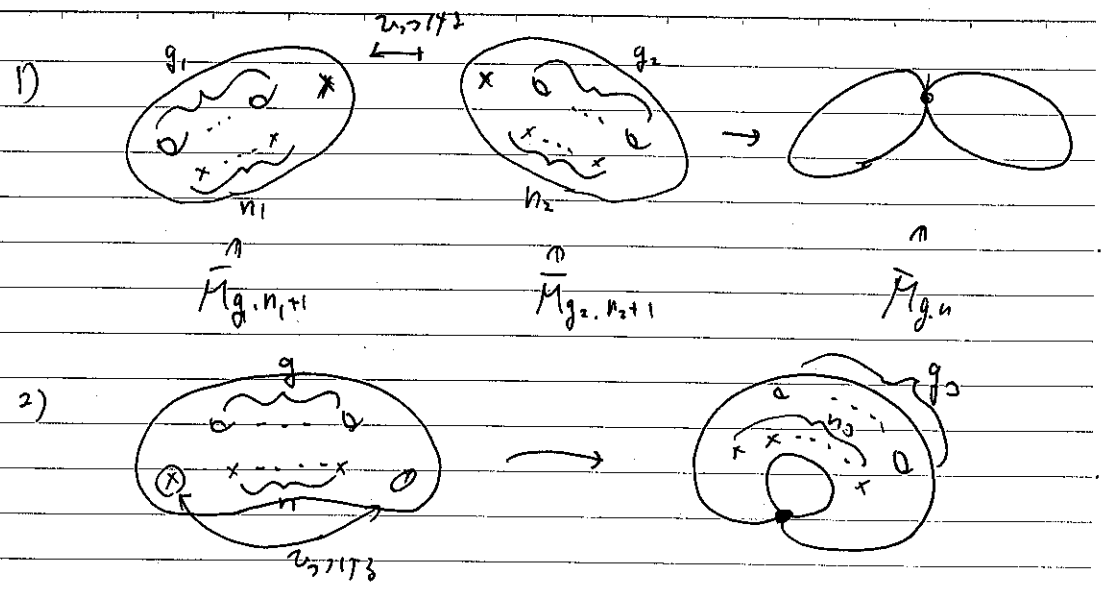 くっつける
1) g₁ g₂
n₁ n₂
M̄g₁,n₁+1 M̄g₂,n₂+1 M̄g,n
2) g g
n n
くっつける